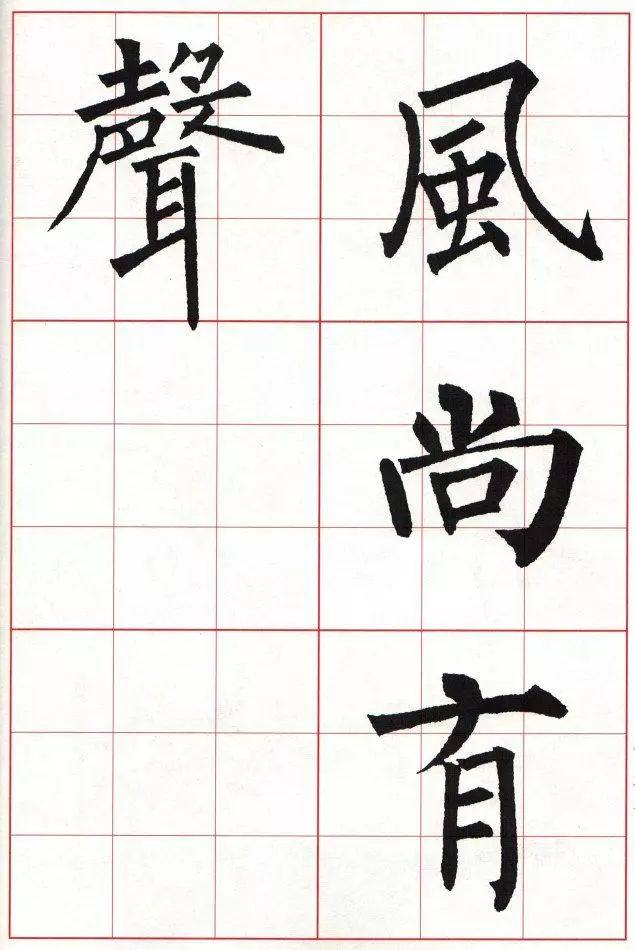 風尚有
聲